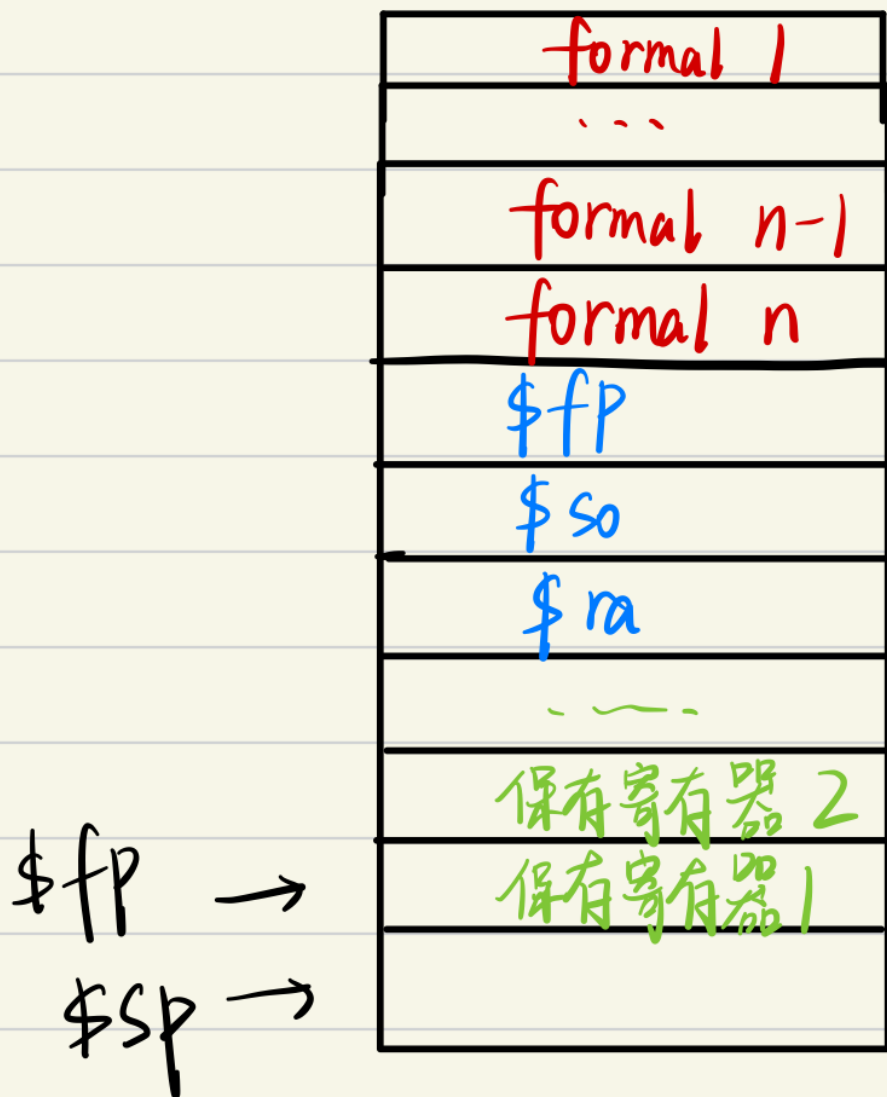 formal 1
...
formal n-1
formal n
$fp
$s0
$ra
......
保存寄存器 2
$fp → 保存寄存器1
$sp →